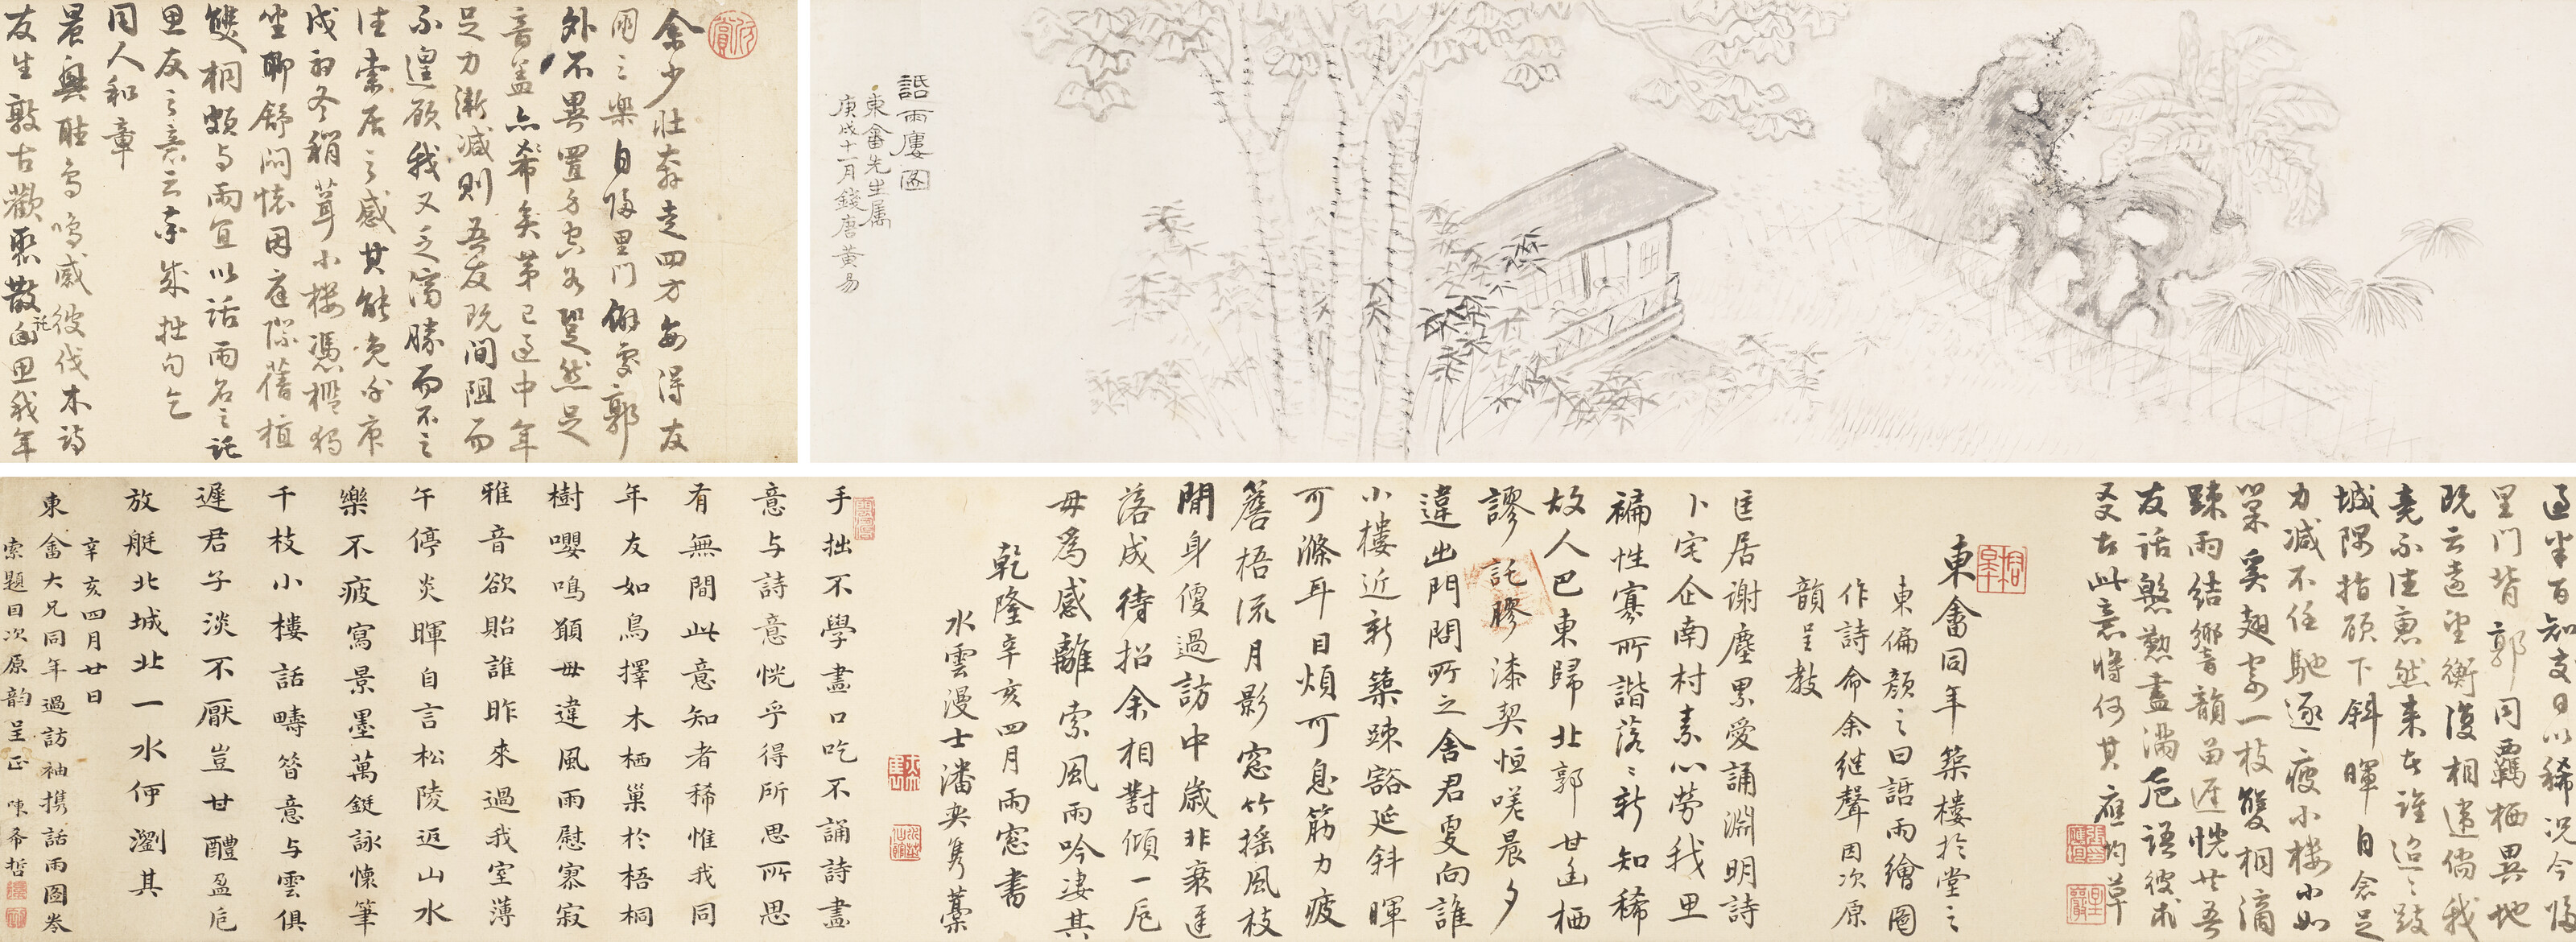 話雨廔圖
東畬先生属
庚戌十一月錢唐黃易
余少壯奔走四方每得友
朋之樂自歸里門僻處郭
外不異置身空谷跫然足
音蓋亦希矣第已過中年
足力漸減則吾友既間阻而
不遑顧我又乏濟勝而不之
往索居之感其能免乎庚
戌初冬稍葺小樓憑檻獨
坐聊舒悶懷因庭際舊植
雙桐頗与雨宜以話雨名之託
思友之意云尔成拙句乞
同人和章
晨興聽鳥鳴感彼伐木詩
友生敦古歡聚散託思我年
過半百知交日以稀況今歸
里門背郭同羈栖異地
既云遠望衡復相違倘我
竟不往惠然来者誰迢迢跂
城隅指顧下斜暉自念足
力減不任馳逐疲小樓小如
巢奚翅寄一枝雙桐滴
踈雨結響韻留遲恍共吾
友話慇懃盡滿卮語彼求
友者此意將何其 應均草
東畬同年築樓於堂之
東偏顏之曰話雨繪圖
作詩命余継聲因次原
韻呈教
匡居謝塵累愛誦淵明詩
卜宅企南村素心勞我思
褊性寡所諧落落新知稀
故人巴東歸北郭甘幽栖
謬託膠漆契恒嗟晨夕
違出門問所之舍君更向誰
小樓近新築踈豁延斜暉
可滌耳目煩可息筋力疲
簷梧流月影窓竹搖風枝
閒身便過訪中歲非衰遲
落成待招余相對傾一卮
毋為感離索風雨吟凄其
乾隆辛亥四月雨窓書
水雲漫士潘奕隽藁
手拙不學畫口吃不誦詩畫
意与詩意恍乎得所思所思
有無間此意知者稀惟我同
年友如鳥擇木栖巢於梧桐
樹嚶鳴顧毋違風雨慰寡寂
雅音欲貽誰昨來過我室薄
午停炎暉自言松陵返山水
樂不疲寫景墨萬鋌詠懷筆
千枝小樓話疇昔意与雲俱
遲君子淡不厭豈甘醴盈卮
放艇北城北一水何瀏其
辛亥四月廿日
東畬大兄同年過訪袖携話雨圖卷
索題因次原韵呈正 陳希哲